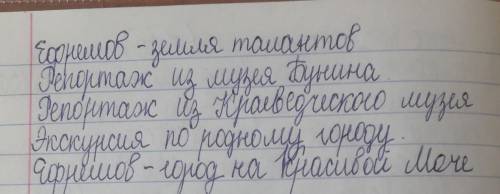 Ефремов - земля талантов
Репортаж из музея Бунина.
Репортаж из Краеведческого музея
Экскурсия по родному городу.
Ефремов - город на Красивой Мече